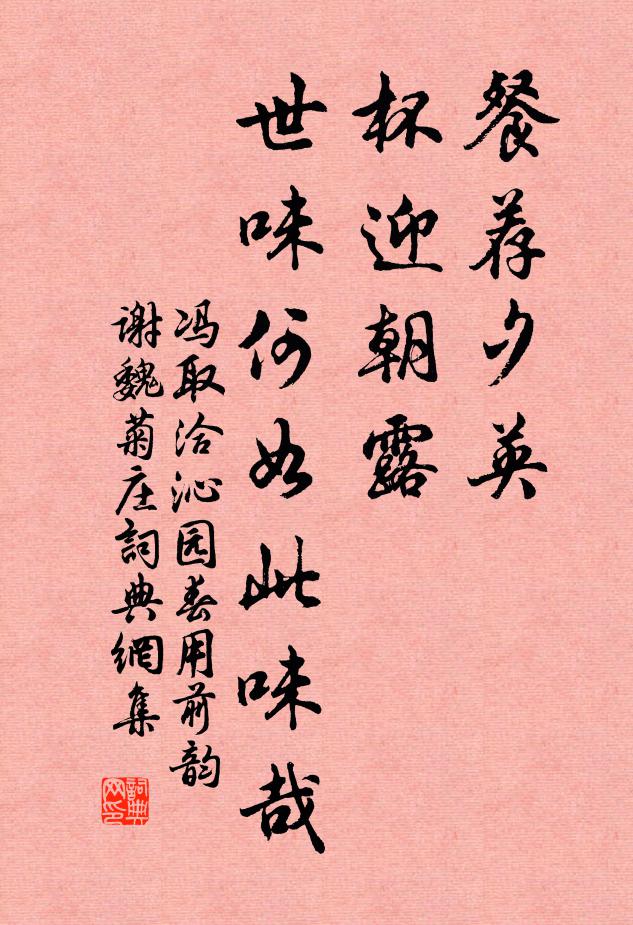 餐荐夕英
杯迎朝露
世味何如此味哉
冯取洽沁园春用前韵
谢魏菊庄詞典網集
詞典
网印